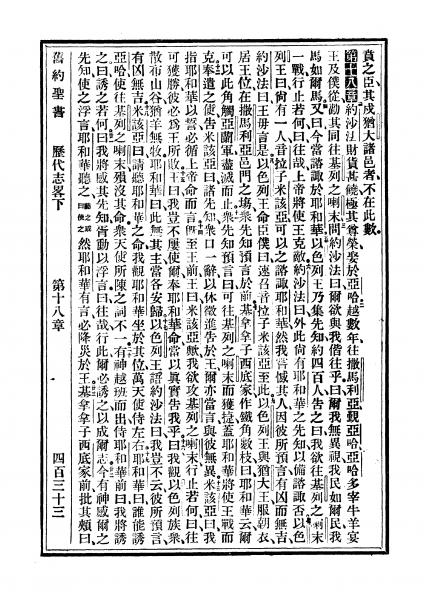 賁之臣、其戍猶大諸邑者、不在此數、
第十八章 約沙法財貨甚饒、極其尊榮、娶於亞哈、越數年、往撒馬利亞、觀亞哈、亞哈多宰牛羊、宴
王及僕從、勸其同往基列之喇末、問約沙法曰、爾與我偕往乎、曰、爾我無異、視我民如爾民、我
馬如爾馬、又曰、今當諮諏於耶和華、以色列王乃集先知約四百人、告之曰、我欲往基列之喇末
一戰、行止若何、曰、往哉、上帝將使王克敵、約沙法曰、外此尚有耶和華之先知、以備諮諏否、以色
列王曰、尚有一人、音拉子米該亞、可以之諮諏耶和華、然我甚憾其人、因彼所預言、有凶而無吉、
約沙法曰、王毋言是、以色列王命臣僕曰、速召音拉子米該亞至此、以色列王與猶大王服朝衣、
居王位、在撒馬利亞邑門之塲、衆先知預言於前、基拿拿子西底家作鐵角數枝、曰、耶和華云、爾
可以此角觸亞蘭軍、盡滅而止、衆先知預言曰、可往基列之喇末而獲捷、蓋耶和華將使王戰而
克、奉遣之使告米該亞曰、諸先知衆口一辭、以休徵進告於王、爾亦當言、與彼無異、米該亞曰、我
指耶和華以誓、必循上帝命而言、旣至王前、王曰、米該亞歟、我欲攻基列之喇末、行止若何、曰、往
可獲勝、彼必爲王所敗、王曰、我豈不屢使爾奉耶和華命、當以眞實告我乎、曰、我觀以色列族衆、
散布山谷、猶羊無牧、耶和華曰、此無其主、當各安歸、以色列王謂約沙法曰、我豈不云、彼所預言
有凶無吉、米該亞曰、請聽耶和華之命、我觀耶和華坐於其位、萬天使侍左右、耶和華曰、誰能誘
亞哈、使往基列之喇末、殞沒其命、衆天使所陳之詞不一、有神越班而出、侍耶和華前、曰、我將誘
之、曰、誘之若何、曰、我將感其先知、胥動以浮言、曰、往哉、行此、爾必誘之、以成爾志、今有神感爾之
先知、使之浮言、耶和華聽之、動之或曰使之 然耶和華有言、必降災於王、基拿拿子西底家前批其頰曰、
舊約聖書 歷代志畧下 第十八章 四百三十三